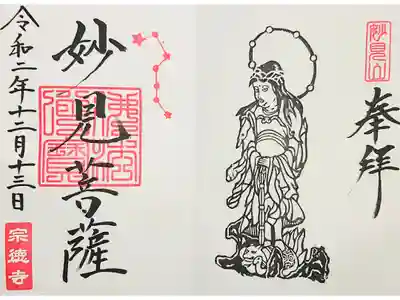 妙見山
奉拝
妙見菩薩
令和二年十二月十三日
宗徳寺